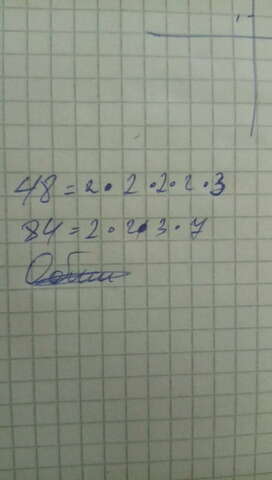 48 = 2 · 2 · 2 · 2 · 3
84 = 2 · 2 · 3 · 7